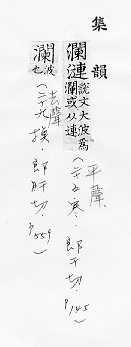 集韻
瀾漣說文大波爲瀾或从連
平聲(二十五寒·郎干切·P145)
瀾波也
去聲(二十九換·郎旰切·P559)